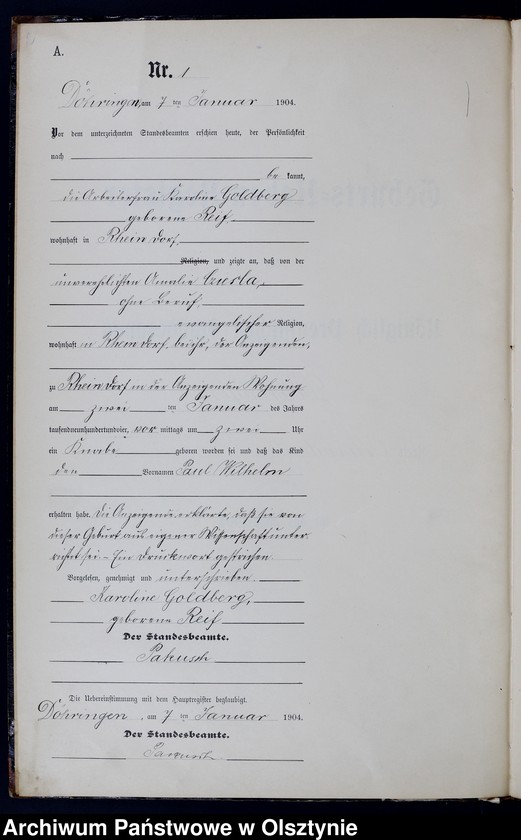 A.
Nr. 1
Döhringen, am 7 ten Januar 1904.
Vor dem unterzeichneten Standesbeamten erschien heute, der Persönlichkeit
nach
be kannt,
die Arbeiterfrau Karoline Goldberg
geborene Reif,
wohnhaft in Rheindorf,
Religion, und zeigte an, daß von der
unverehelichten Amalie
ohne Beruf,
evangelischer Religion,
wohnhaft in Rheindorf, bei ihr, der Anzeigenden,
zu Rheindorf in der Anzeigenden Wohnung
am zwei ten Januar des Jahres
tausendneunhundertundvier, vor mittags um zwei Uhr
ein Knabe geboren worden sei und daß das Kind
den Vornamen Paul Wilhelm
erhalten habe. Die Anzeigende erklärte, daß sie von
dieser Geburt aus eigener Wissenschaft unter-
richtet sei. - Ein Druckwort gestrichen.
Vorgelesen, genehmigt und unterschrieben
Karoline Goldberg,
geborene Reif
Der Standesbeamte.
Die Uebereinstimmung mit dem Hauptregister beglaubigt.
Döhringen, am 7 ten Januar 1904.
Der Standesbeamte.
Archiwum Państwowe w Olsztynie